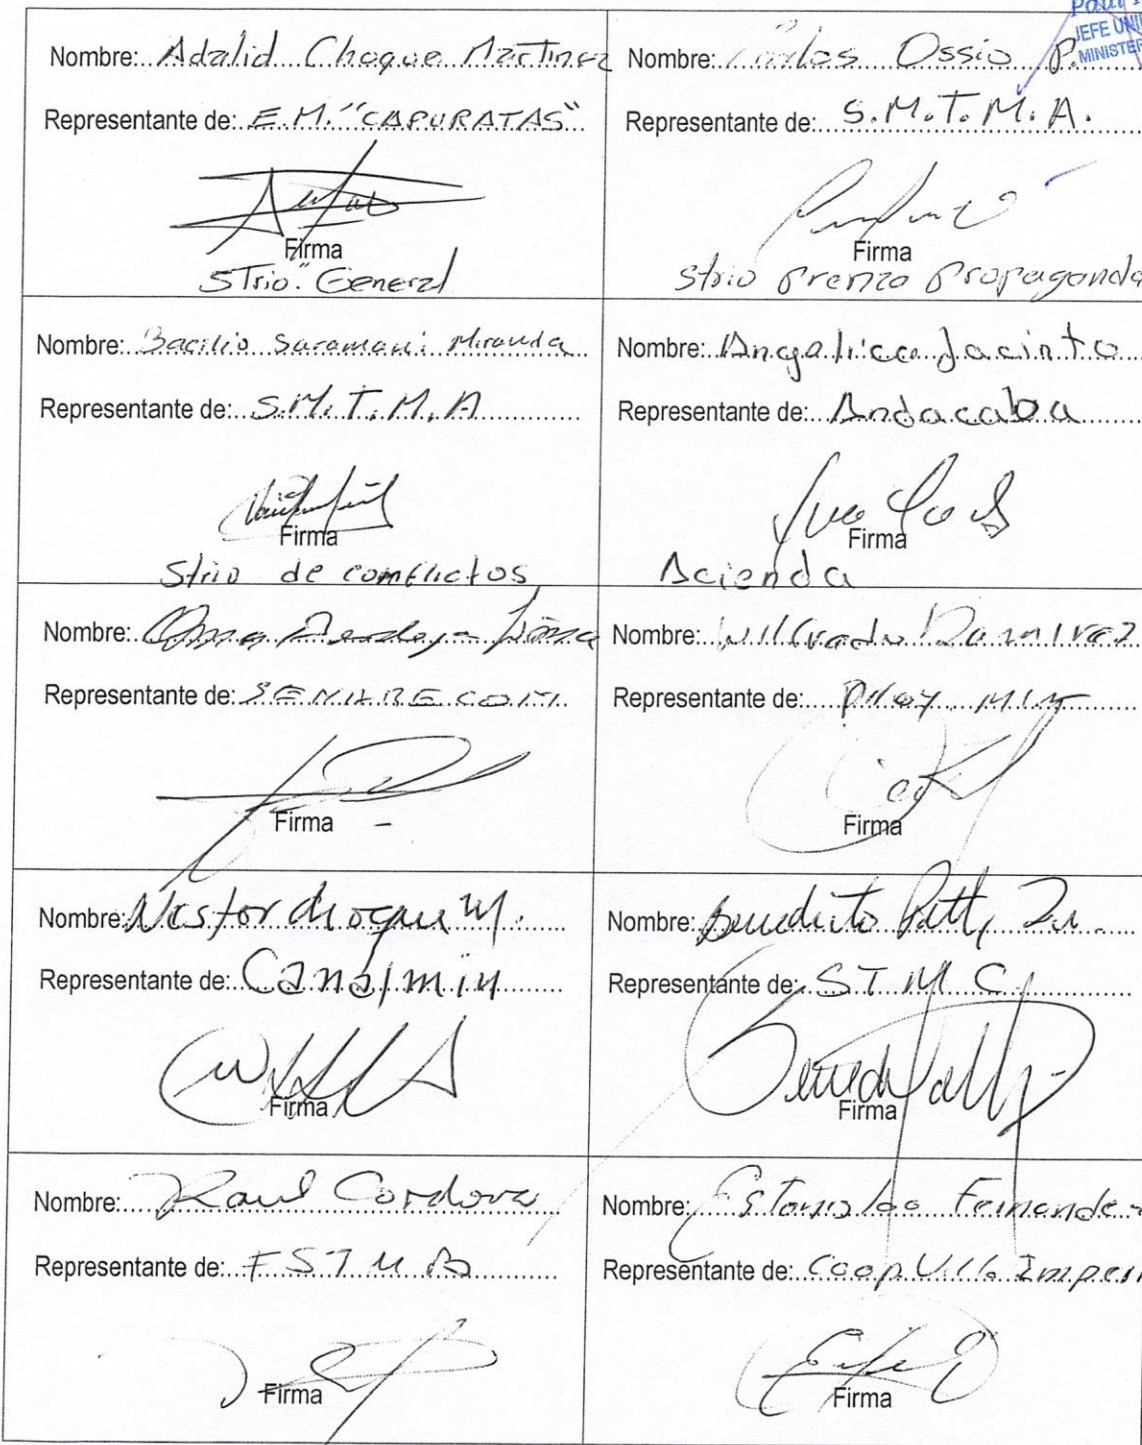 JEFE UNI
MINISTER
Nombre: Adalid Choque Martinez
Representante de: E.M. "CAPURATAS"
Firma
STrio. General
Nombre: Carlos Ossio P.
Representante de: S.M.T.M.A.
Firma
strio prenza propaganda
Nombre: Bacilio Saramani Miranda
Representante de: S.M.T.M.A
Firma
Strio de comflictos
Nombre: Angelica Jacinto
Representante de: Andacaba
Firma
Acienda
Nombre:
Representante de: SENARECOM.
Firma
Nombre: Ramirez
Representante de:
Firma
Nombre: Nestor choque M.
Representante de: Canalmin
Firma
Nombre: Benedicto
Representante de: S T M C
Firma
Nombre: Raul Cordova
Representante de: F S T M B
Firma
Nombre: Estanislao Fernande
Representante de: Coop Villa Imperi
Firma